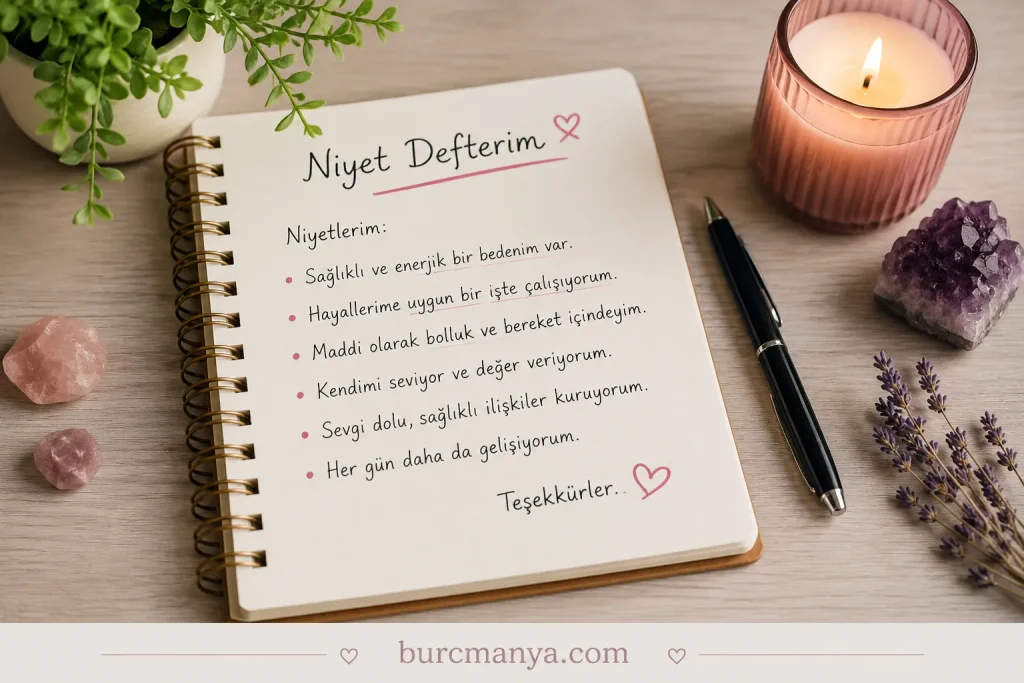 Niyet Defterim
Niyetlerim:
Sağlıklı ve enerjik bir bedenim var.
Hayallerime uygun bir işte çalışıyorum.
Maddi olarak bolluk ve bereket içindeyim.
Kendimi seviyor ve değer veriyorum.
Sevgi dolu, sağlıklı ilişkiler kuruyorum.
Her gün daha da gelişiyorum.
Teşekkürler..
burcmanya.com